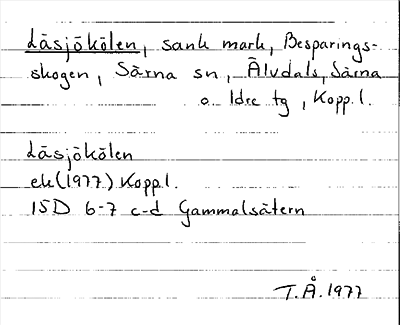 Låsjökölen, sank mark, Besparings-
skogen, Särna sn, Älvdals, Särna
o. Idre tg, Kopp.l.
Låsjökölen
ek(1977) Kopp.l.
15D 6-7 c-d Gammalsätern
T.Å. 1977